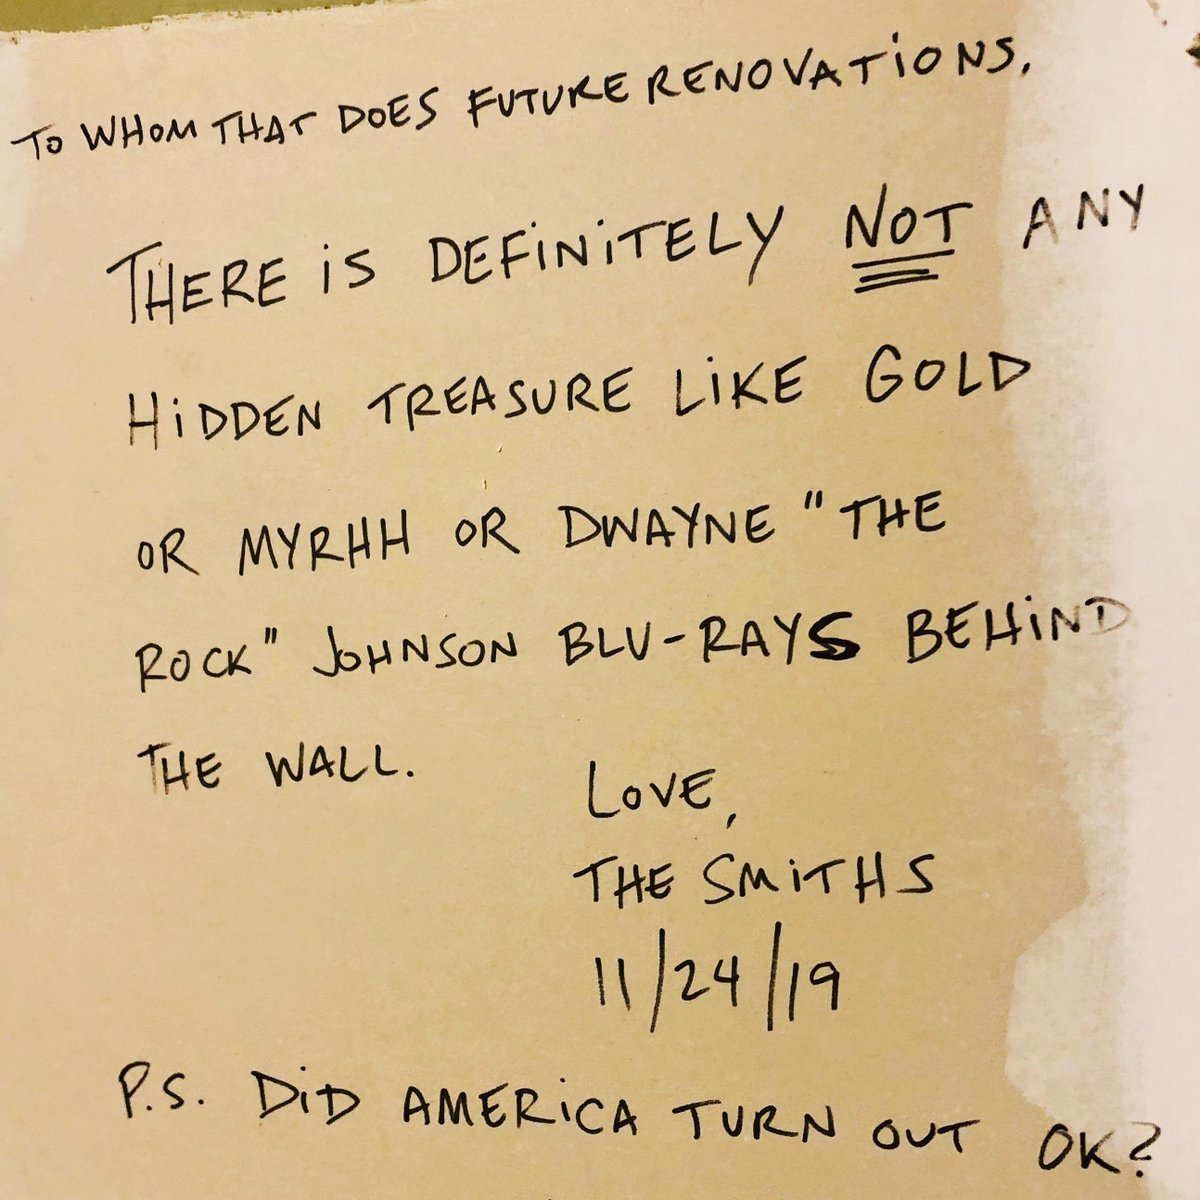 TO WHOM THAT DOES FUTURE RENOVATIONS,
THERE IS DEFINITELY NOT ANY
HIDDEN TREASURE LIKE GOLD
OR MYRHH OR DWAYNE "THE
ROCK" JOHNSON BLU-RAYS BEHIND
THE WALL.
LOVE,
THE SMITHS
11/24/19
P.S. DID AMERICA TURN OUT OK?